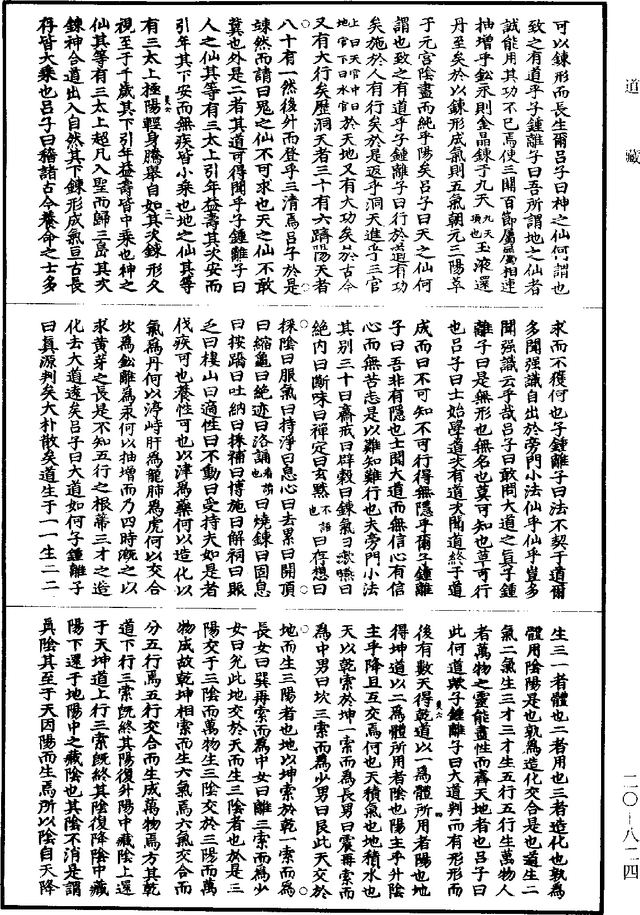 道藏
可以鍊形而長生爾吕子曰神之仙何謂也
致之有道乎子鍾離子曰吾所謂地之仙者
誠能用其功不已焉使三關百節屬屬相連
抽增乎鈆汞則金晶鍊于九天九天項也玉液還
丹至矣於以鍊形成氣則五氣朝元三陽萃
于元宫陰盡而純乎陽矣吕子曰天之仙何
謂也致之有道乎子鍾離子曰行於道有功
矣施於人有行矣於是返乎洞天進乎三官
上曰天官中曰地官下曰水官於天地又有大功矣於古今
又有大行矣歷洞天者三十有六躋陽天者
八十有一然後外而登乎三清焉吕子於是
竦然而請曰鬼之仙不可求也天之仙不敢
冀也外是二者其道可得聞乎子鍾離子曰
人之仙其等有三太上引年益壽其次安而
引年其下安而無疾皆小乘也地之仙其等
有三太上極陽輕身騰舉自如其次鍊形久
視至于千歲其下引年益壽皆中乘也神之
仙其等有三太上超凡入聖而歸三島其次
鍊神合道出入自然其下鍊形成氣亘古長
存皆大乘也吕子曰稽諸古今養命之士多
求而不獲何也子鍾離子曰法不契于道爾
多聞强識自出於旁門小法仙乎仙乎豈多
聞强識云乎哉吕子曰敢問大道之真子鍾
離子曰是無形也無名也莫可知也莫可行
也吕子曰士始學道次有道次聞道終于道
成而曰不可知不可行得無隱乎爾子鍾離
子曰吾非有隱也士聞大道而無信心有信
心而無苦志是以難知難行也夫旁門小法
其别三十曰齋戒曰辟穀曰鍊氣曰漱嚥曰
絶内曰斷味曰禪定曰玄默不語也曰存想曰
採陰曰服氣曰持淨曰息心曰去累曰開頂
曰縮龜曰絶迹曰洛誦看讀也曰燒鍊曰固息
曰按蹻曰吐納曰採補曰博施曰解祠曰賑
乏曰棲山曰適性曰不動曰受持夫如是者
伐疾可也養性可也以津爲藥何以造化以
氣爲丹何以渟峙肝爲龍肺爲虎何以交合
坎爲鈆離爲汞何以抽增而乃四時溉之以
求黄芽之長是不知五行之根蔕三才之造
化去大道逺矣吕子曰大道如何子鍾離子
曰真源判矣大朴散矣道生于一一生二二
生三一者體也二者用也三者造化也孰爲
體用陰陽是也孰爲造化交合是也道生二
氣二氣生三才三才生五行五行生萬物人
者萬物之靈能盡性而齊天地者也吕子曰
此何道歟子鍾離子曰大道判而有形形而
後有數天得乾道以一爲體所用者陽也地
得坤道以二爲體所用者陰也陽主乎升陰
主乎降且互交焉何也天積氣也地積水也
天以乾索於坤一索而爲長男曰震再索而
爲中男曰坎三索而爲少男曰艮此天交於
地而生三陽者也地以坤索於乾一索而爲
長女曰巽再索而爲中女曰離三索而爲少
女曰兊此地交於天而生三陰者也於是三
陽交于三陰而萬物生三陰交於三陽而萬
物成故乾坤相索而生六氣焉六氣交合而
分五行焉五行交合而生成萬物焉方其乾
道下行三索旣終其陽復升陽中藏陰上還
于天坤道上行三索旣終其陰復降陰中藏
陽下還于地陽中之藏陰也其陰不消是謂
真陰其至于天因陽而生焉所以陰自天降
二〇-八二四